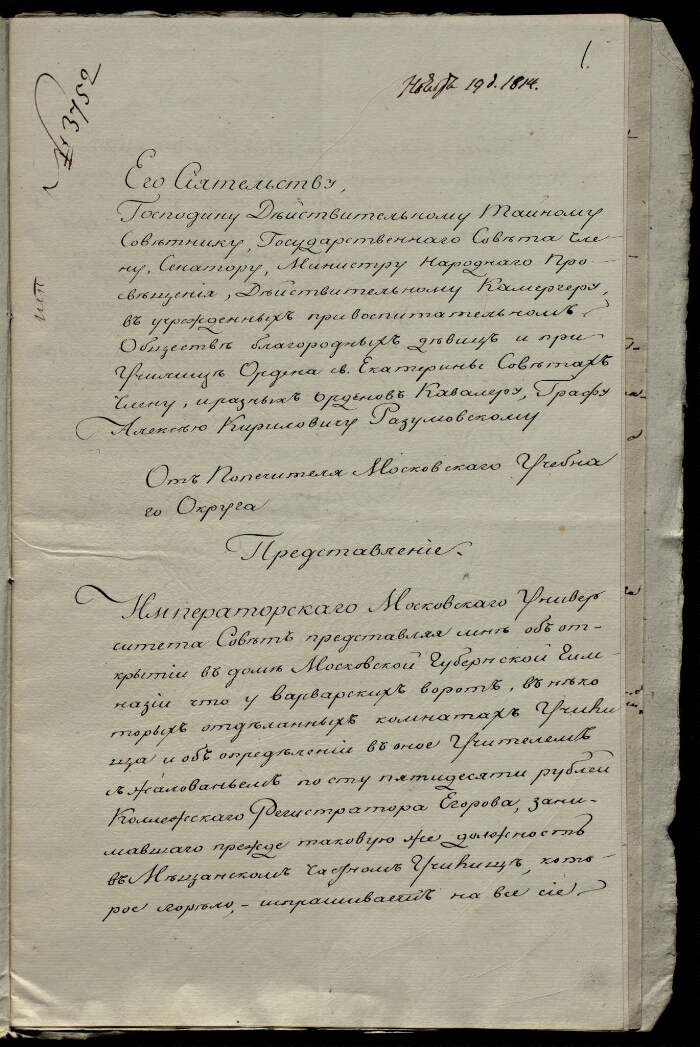 1.
Ноября 19 д. 1814.
№ 3752
Его Сіятельству,
Господину Дѣйствительному Тайному
Совѣтнику, Государственнаго Совѣта Чле-
ну, Сенатору, Министру Народнаго Про-
свѣщенія, Дѣйствительному Камергеру,
въ учрежденныхъ при воспитательномъ
Обществѣ благородныхъ дѣвицъ и при
Училищѣ Ордена св. Екатерины Совѣтахъ
Члену, и разныхъ орденовъ Кавалеру, Графу
Алексѣю Кириловичу Разумовскому
Отъ Попечителя Московскаго Учебна
го Округа
Представленіе.
Императорскаго Московскаго Универ
ситета Совѣтъ представляя мнѣ объ от-
крытіи въ домѣ Московской Губернской Гим
назіи что у Варварскихъ воротъ, въ нѣко
торыхъ отдѣланныхъ комнатахъ Учили
ща и объ опредѣленіи въ оное Учителемъ
съ жалованьемъ по сту пятидесяти рублей
Коллежскаго Регистратора Егорова, зани-
мавшаго прежде таковую же должность
въ Мѣщанскомъ частномъ Училищѣ, кото-
рое сгорѣло, - испрашиваетъ на все сіе